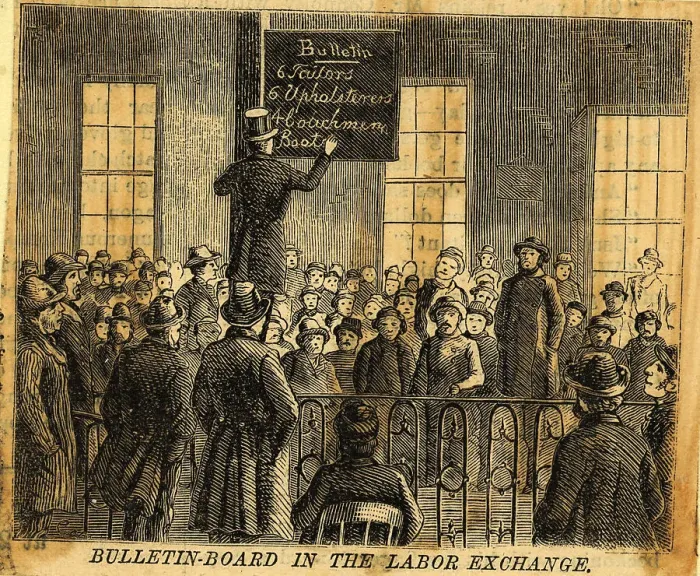 Bulletin
6 Tailors
6 Upholsterers
4 Coachmen
Boot
BULLETIN-BOARD IN THE LABOR EXCHANGE.